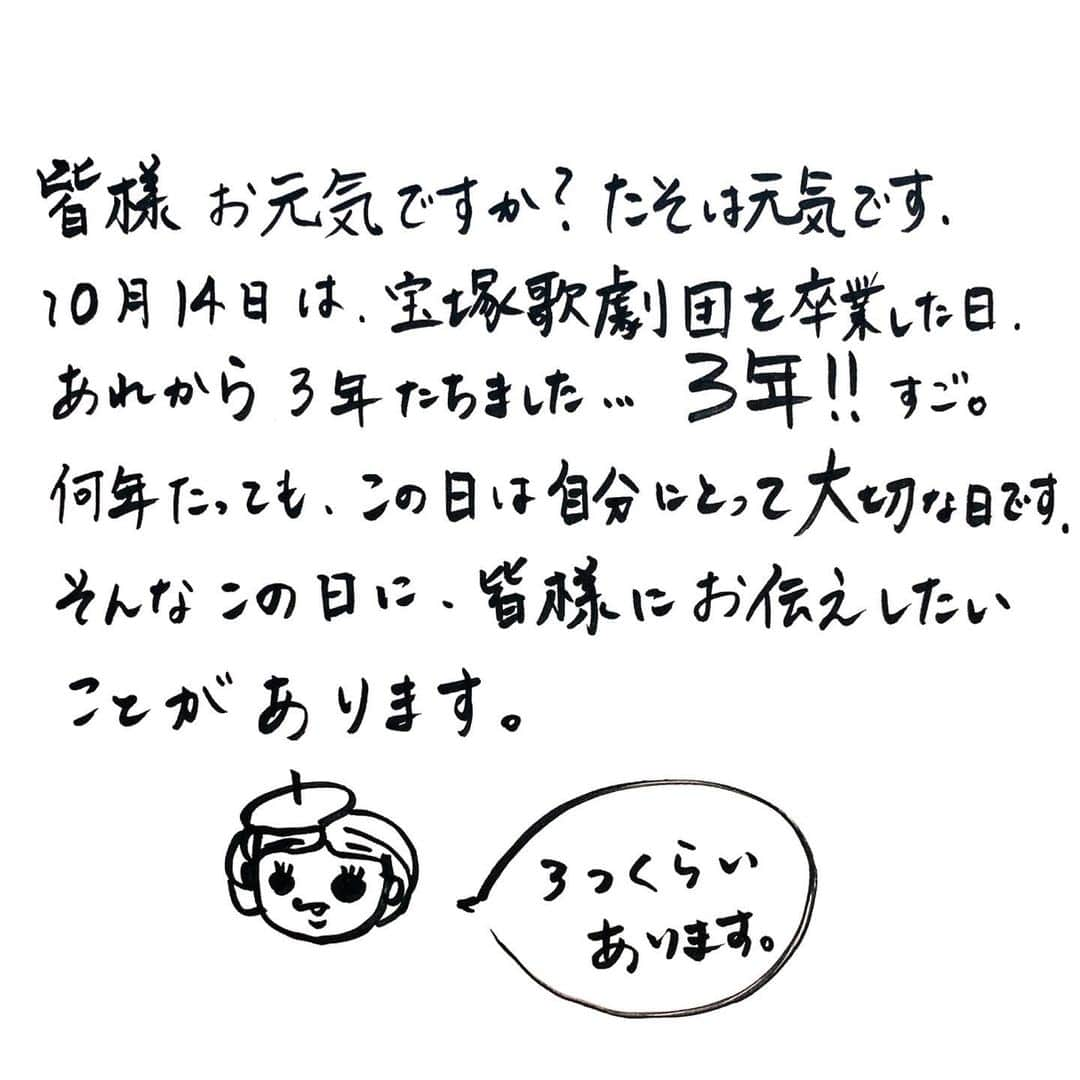 皆様 お元気ですか？たそは元気です.
10月14日は、宝塚歌劇団を卒業した日.
あれから 3年たちました… 3年!! すご。
何年たっても、この日は自分にとって大切な日です.
そんなこの日に、皆様にお伝えしたい
ことがあります。
3つくらい
あります。